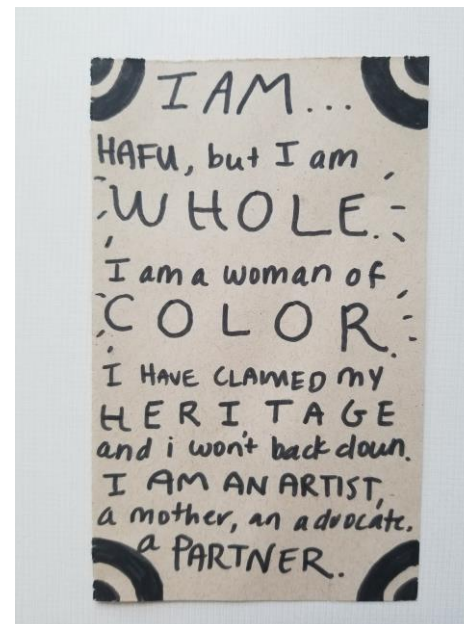 I AM...
HAFU, but I am
WHOLE.
I am a woman of
COLOR.
I HAVE CLAIMED MY
HERITAGE
and i won't back down.
I AM AN ARTIST,
a mother, an advocate.
a PARTNER.